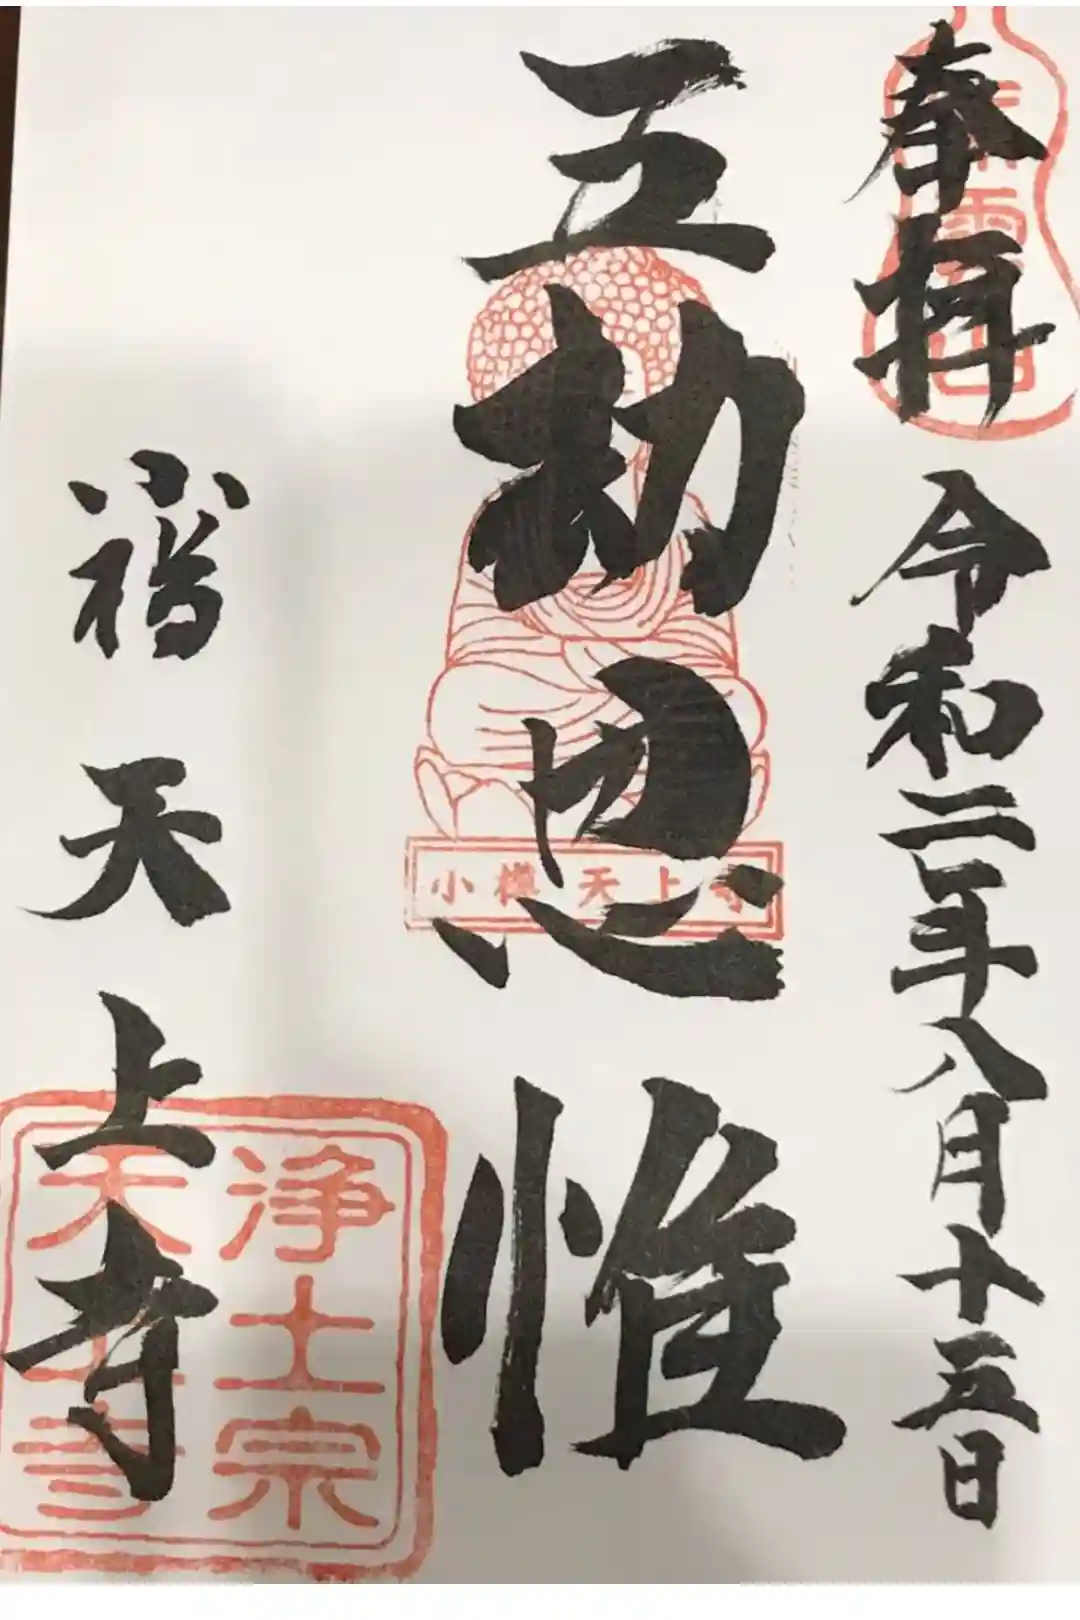 奉拝
令和二年八月十五日
五劫思惟
小樽天上寺
小樽天上寺
浄土宗
天上寺